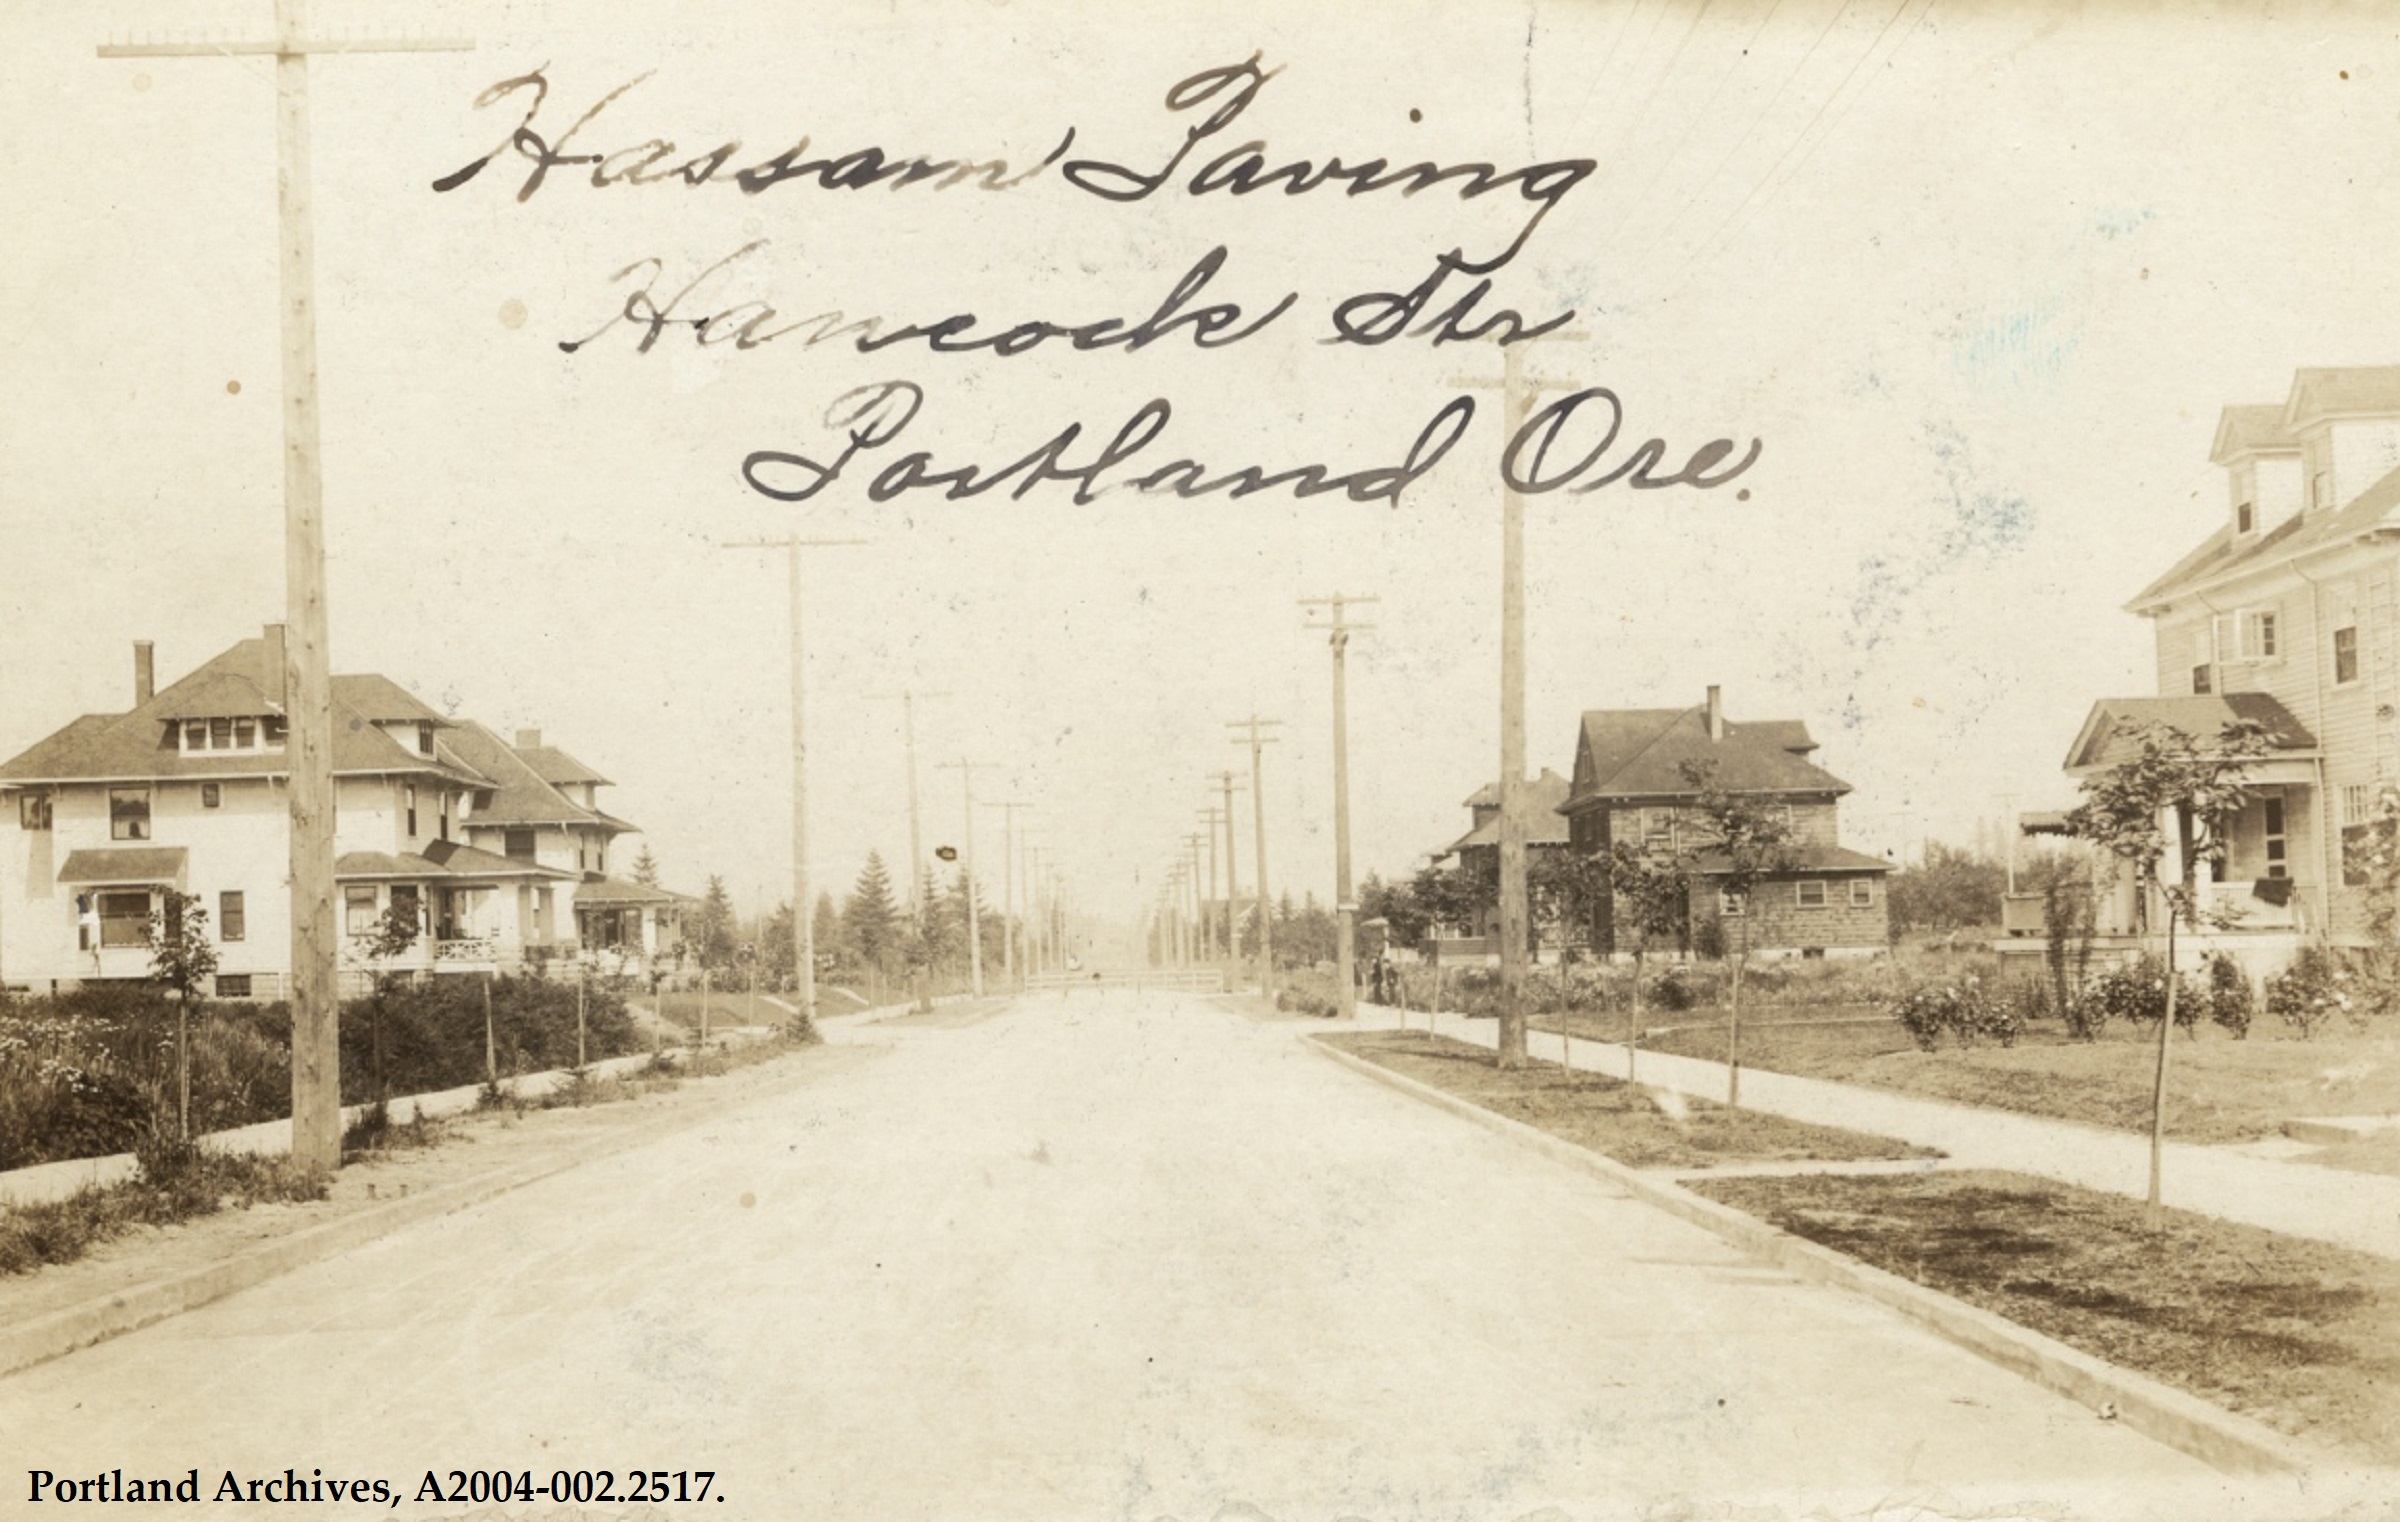 Hassam Paving
Hancock Str
Portland Ore.
Portland Archives, A2004-002.2517.